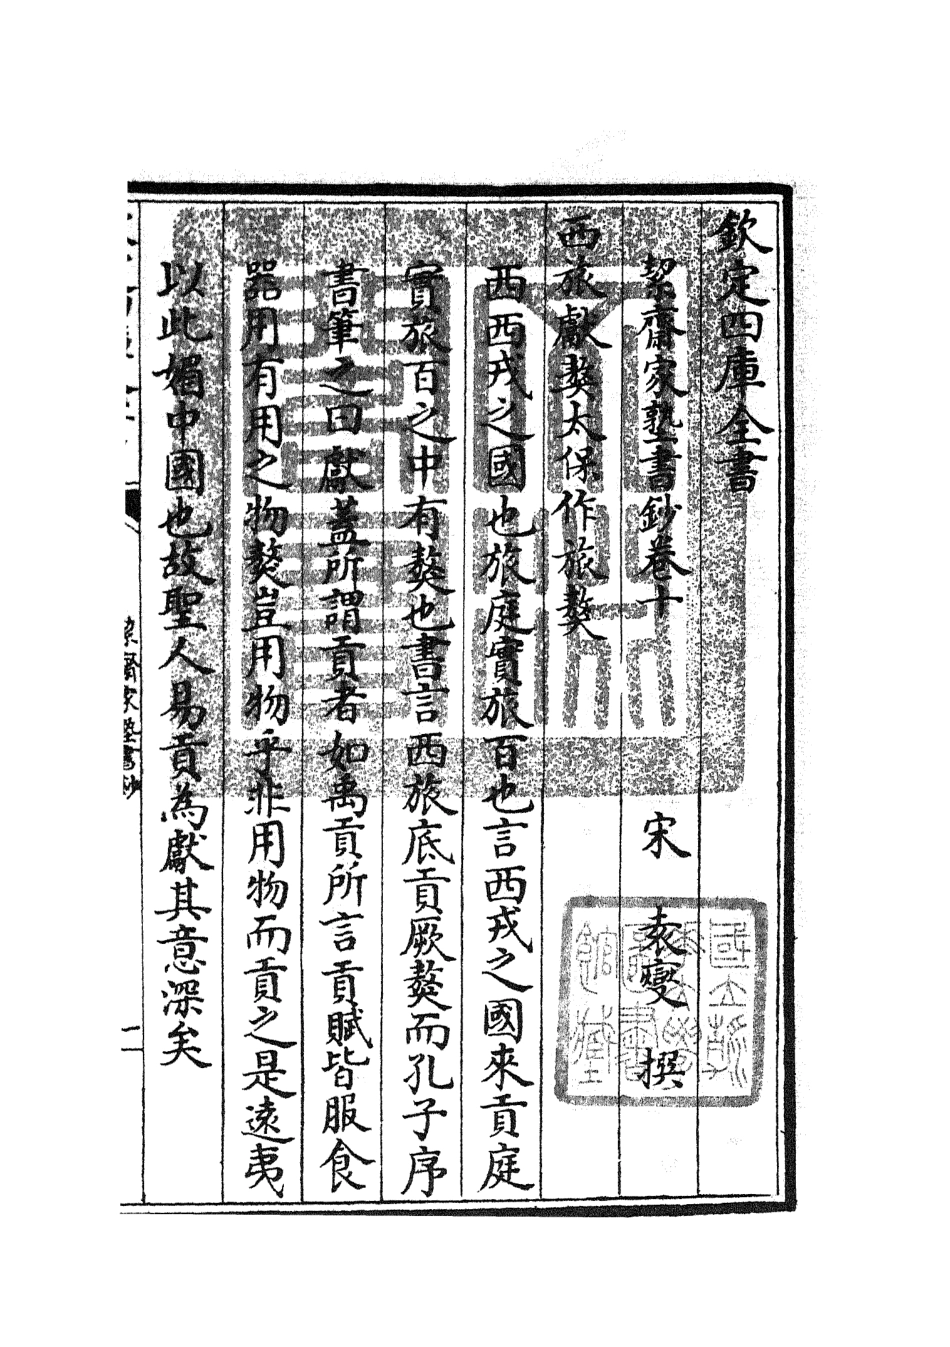 欽定四庫全書
絜齋家塾書鈔卷十 宋 袁燮 撰
西旅獻獒太保作旅獒
西西戎之國也旅庭實旅百也言西戎之國來貢庭
實旅百之中有獒也書言西旅底貢厥獒而孔子序
書筆之曰獻蓋所謂貢者如禹貢所言貢賦皆服食
器用有用之物獒豈用物乎非用物而貢之是遠夷
以此媚中國也故聖人易貢為獻其意深矣
絜齋家塾書鈔
一